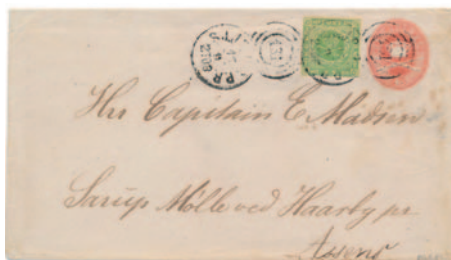 Hrr Capitain E Madsen
Sarup Mølle ved Haarby pr
Assens